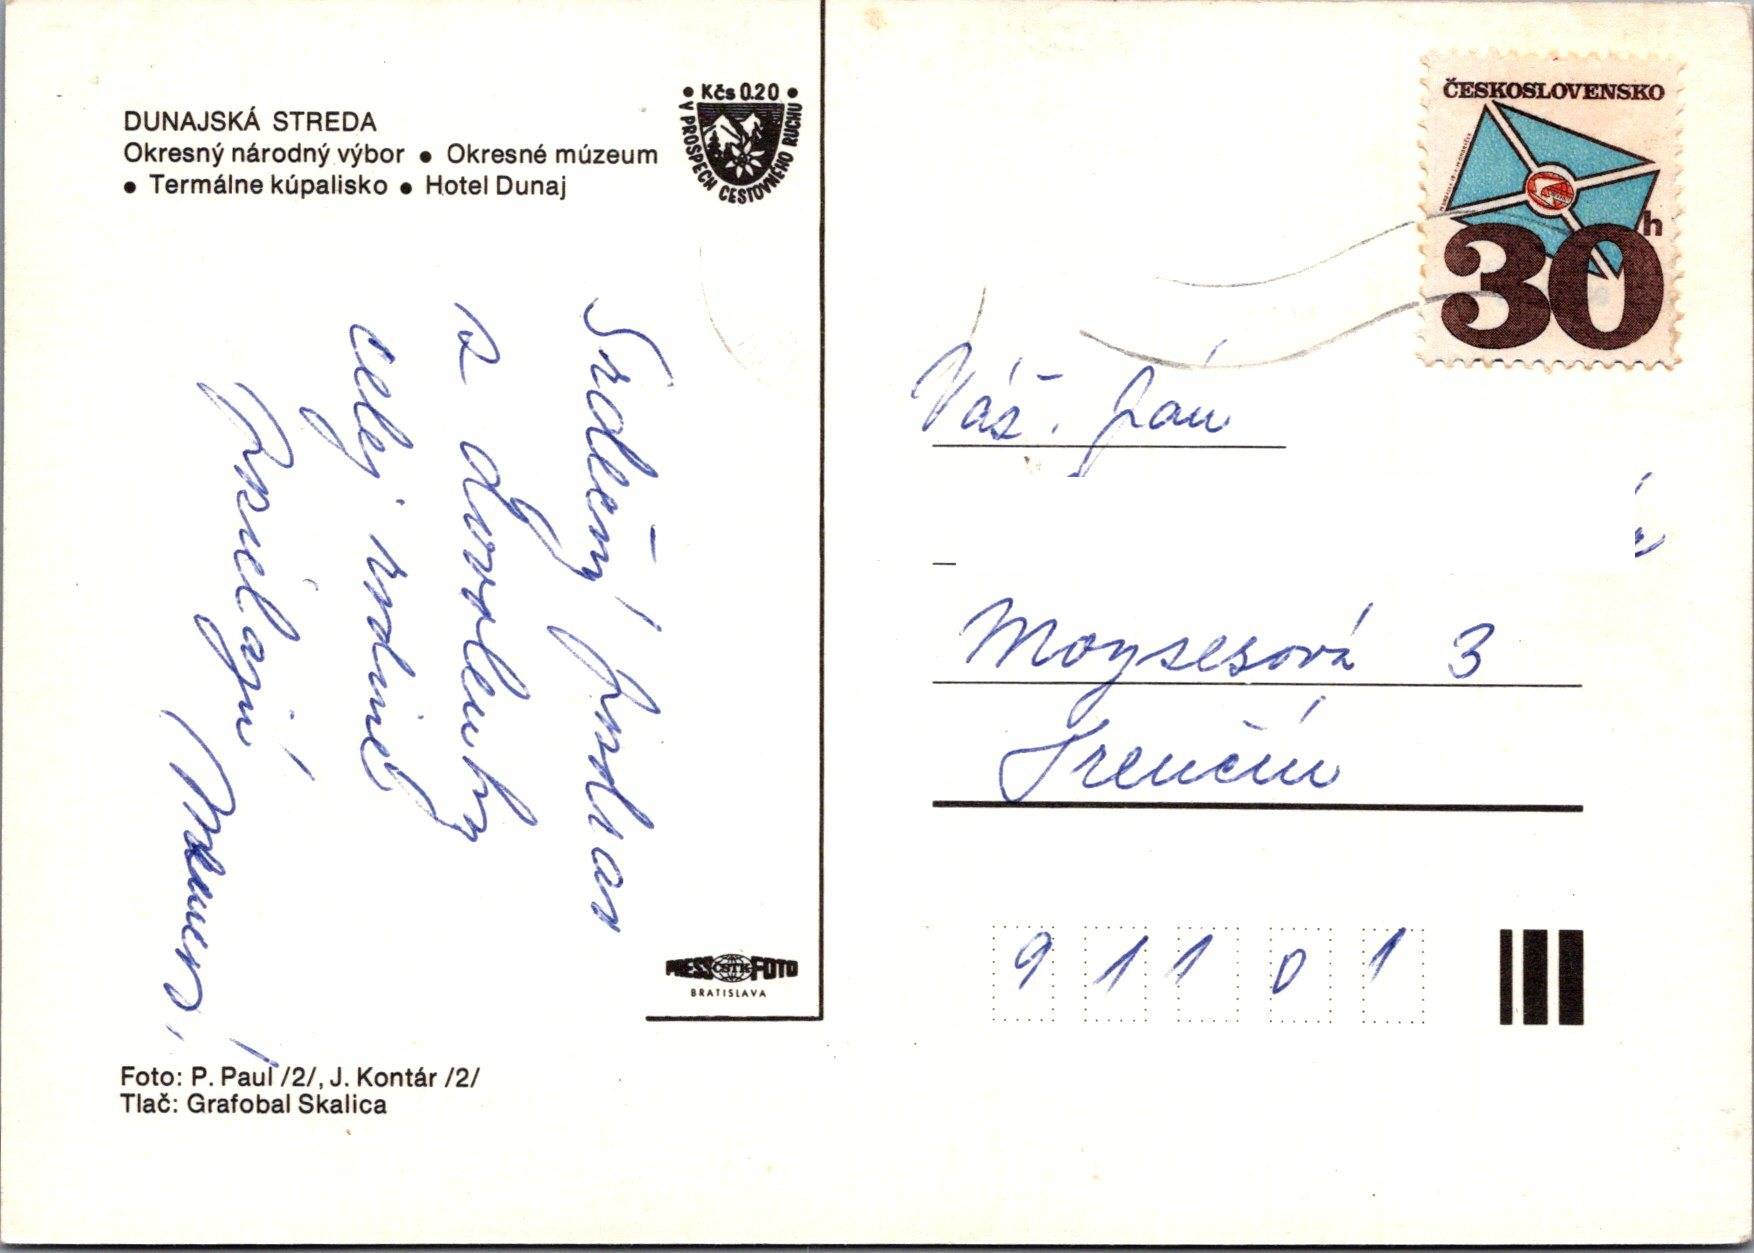 DUNAJSKÁ STREDA
Okresný národný výbor • Okresné múzeum
• Termálne kúpalisko • Hotel Dunaj
• Kčs 0.20 •
V PROSPECH CESTOVNÉHO RUCHU
Srdečný pozdrav
z dovolenky
celej rodine
posielajú
PRESS ČSTK FOTO
BRATISLAVA
Foto: P. Paul /2/, J. Kontár /2/
Tlač: Grafobal Skalica
ČESKOSLOVENSKO
30 h
Váž. pán
Moysesová 3
Trenčín
91101